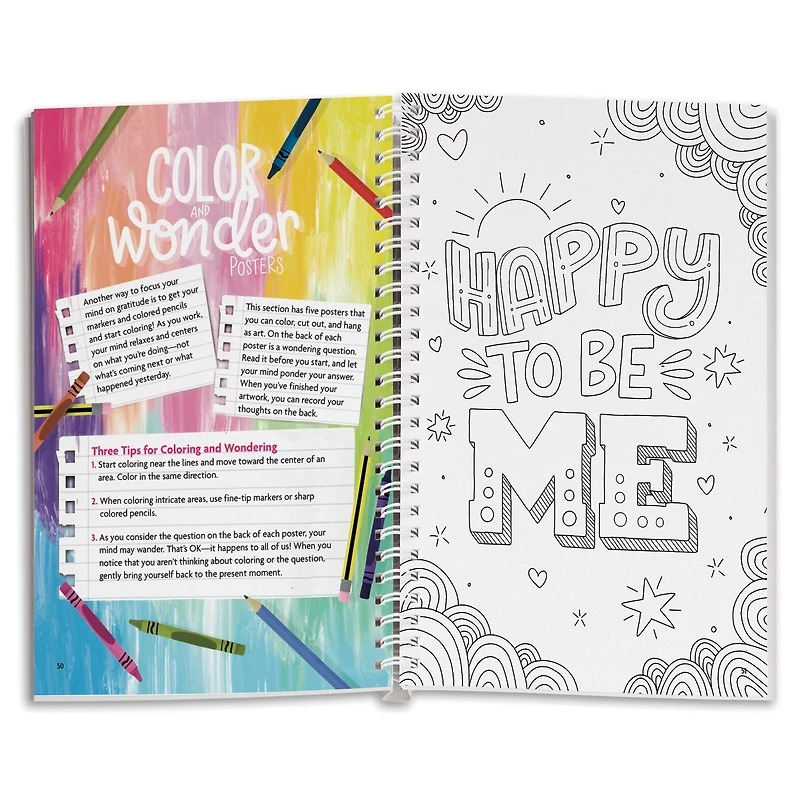 COLOR
AND
Wonder
POSTERS
Another way to focus your
mind on gratitude is to get your
markers and colored pencils
and start coloring! As you work,
your mind relaxes and centers
on what you're doing—not
what's coming next or what
happened yesterday.
This section has five posters that
you can color, cut out, and hang
as art. On the back of each
poster is a wondering question.
Read it before you start, and let
your mind ponder your answer.
When you've finished your
artwork, you can record your
thoughts on the back.
Three Tips for Coloring and Wondering
1. Start coloring near the lines and move toward the center of an
area. Color in the same direction.
2. When coloring intricate areas, use fine-tip markers or sharp
colored pencils.
3. As you consider the question on the back of each poster, your
mind may wander. That's OK—it happens to all of us! When you
notice that you aren't thinking about coloring or the question,
gently bring yourself back to the present moment.
50
HAPPY
TO BE
ME